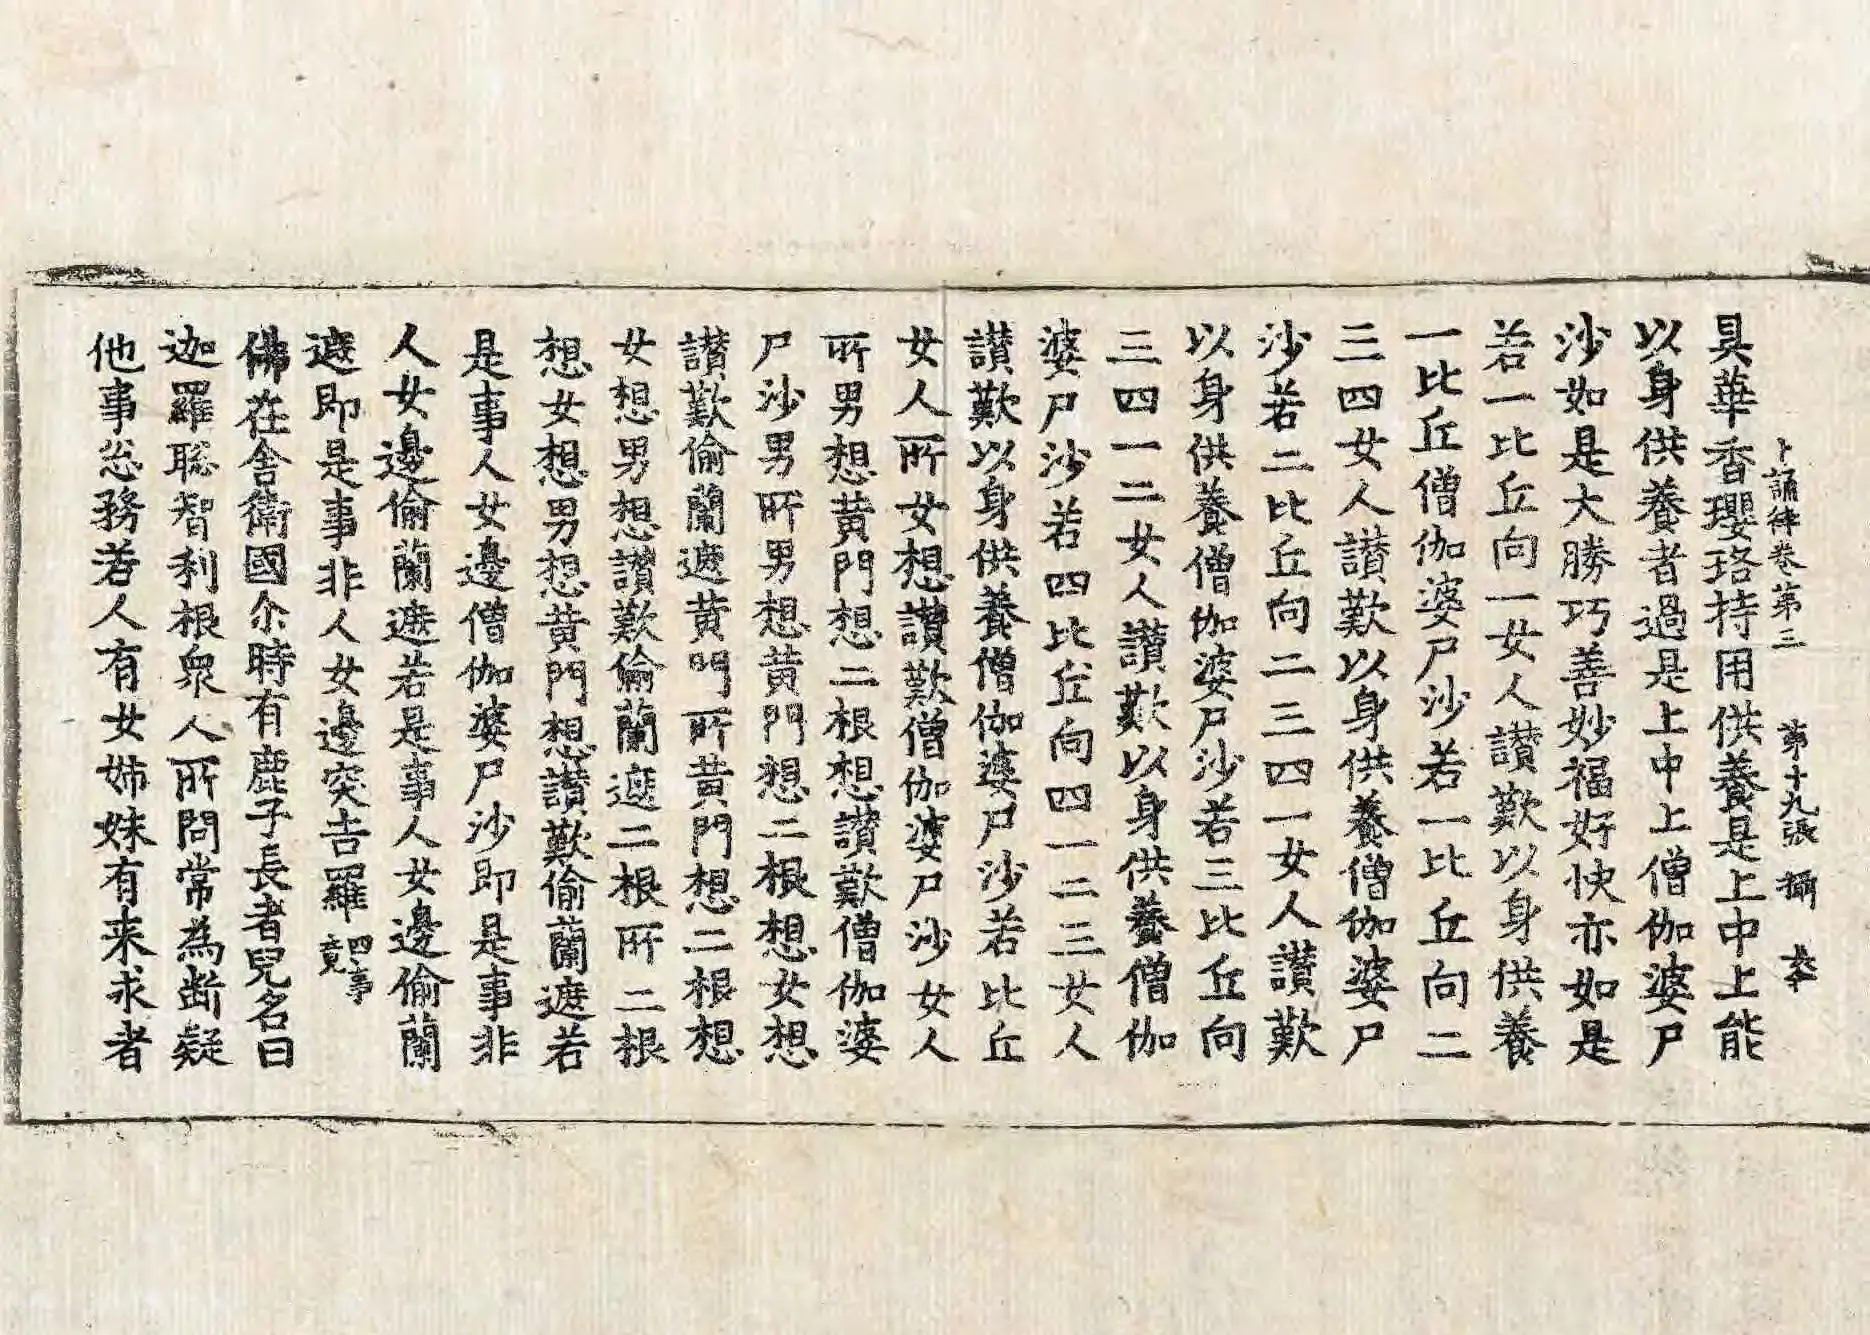 十誦律卷第三 第十九張 攝
具華香瓔珞持用供養是上中上能
以身供養者過是上中上僧伽婆尸
沙如是大勝巧善妙福好快亦如是
若一比丘向一女人讃歎以身供養
一比丘僧伽婆尸沙若一比丘向二
三四女人讃歎以身供養僧伽婆尸
沙若二比丘向二三四一女人讃歎
以身供養僧伽婆尸沙若三比丘向
三四一二女人讃歎以身供養僧伽
婆尸沙若四比丘向四一二三女人
讃歎以身供養僧伽婆尸沙若比丘
女人所女想讃歎僧伽婆尸沙女人
所男想黄門想二根想讃歎僧伽婆
尸沙男所男想黄門想二根想女想
讃歎偷蘭遮黄門所黄門想二根想
女想男想讃歎偷蘭遮二根所二根
想女想男想黄門想讃歎偷蘭遮若
是事人女邊僧伽婆尸沙即是事非
人女邊偷蘭遮若是事人女邊偷蘭
遮即是事非人女邊突吉羅四事竟
佛在舎衛國尒時有鹿子長者兒名曰
迦羅聡智利根衆人所問常為断疑
他事忩務若人有女姉妹有来求者